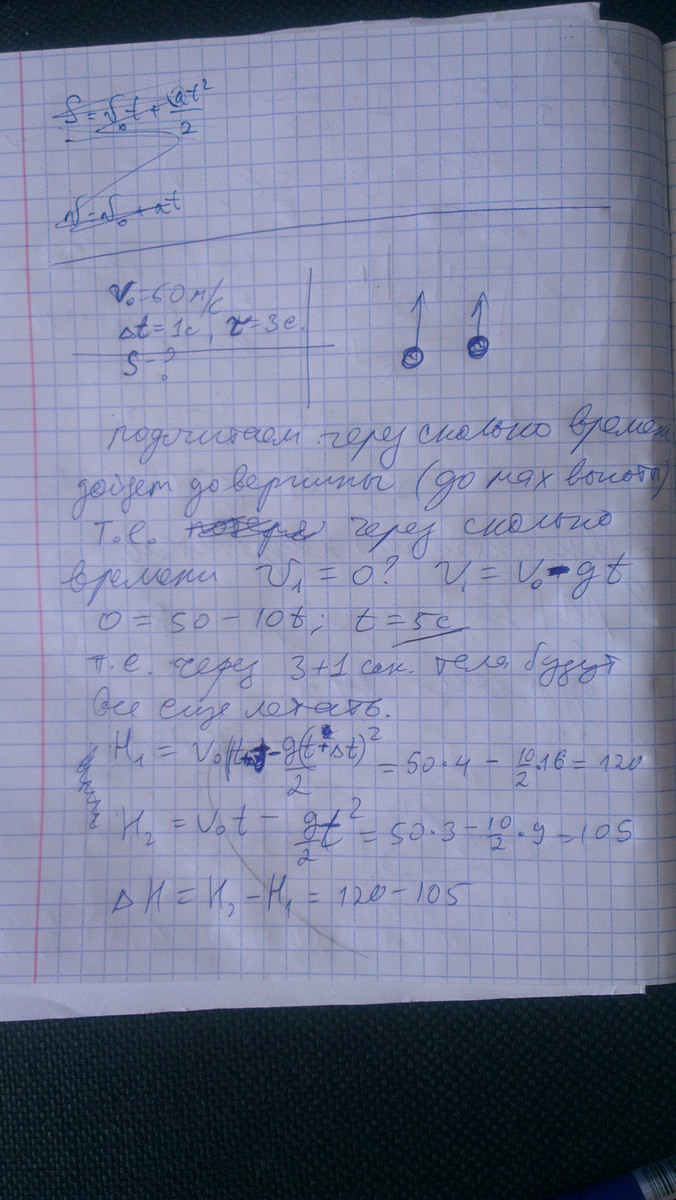 S = V₀t + at²/2
V = V₀ + at
V₀ = 60 м/с
Δt = 1с, τ = 3с.
S - ?
подсчитаем через сколько времен
дойдет до вершины (до max высоты)
т.е. через сколько
времени V₁ = 0? V₁ = V₀ - gt
0 = 50 - 10t; t = 5с
т.е. через 3+1 сек. тела будут
все еще летать.
H₁ = V₀(t+Δt) - g(t+Δt)²/2 = 50·4 - 10/2·16 = 120
H₂ = V₀t - gt²/2 = 50·3 - 10/2·9 = 105
ΔH = H₂ - H₁ = 120 - 105